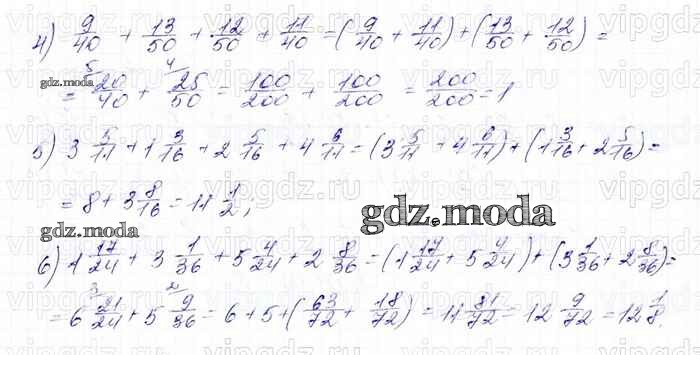 4) 9/40 + 13/50 + 12/50 + 11/40 = (9/40 + 11/40) + (13/50 + 12/50) =
= 20/40 + 25/50 = 100/200 + 100/200 = 200/200 = 1
gdz.moda
5) 3 5/11 + 1 3/16 + 2 5/16 + 4 6/11 = (3 5/11 + 4 6/11) + (1 3/16 + 2 5/16) =
= 8 + 3 8/16 = 11 1/2;
gdz.moda
gdz.moda
6) 1 17/24 + 3 1/36 + 5 4/24 + 2 8/36 = (1 17/24 + 5 4/24) + (3 1/36 + 2 8/36) =
= 6 21/24 + 5 9/36 = 6 + 5 + (63/72 + 18/72) = 11 81/72 = 12 9/72 = 12 1/8.